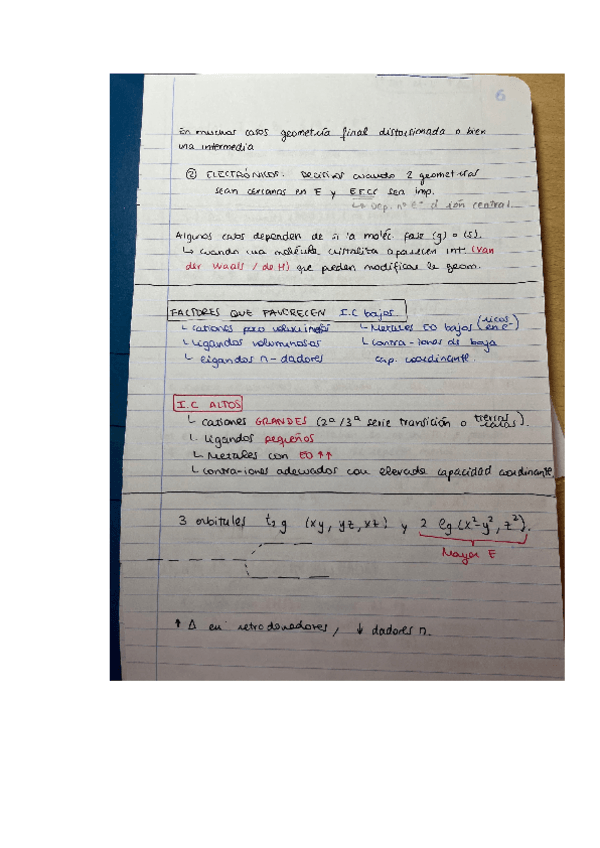 6
En muchos casos geometría final distorsionada o bien
una intermedia
② ELECTRÓNICOS: Decisivos cuando 2 geometrías
sean cercanas en E y EECC sea imp.
↳ Dep. nº e⁻ d ión central.
Algunos casos dependen de si la moléc. fase (g) o (s).
↳ cuando una molécula cristaliza aparecen int. (Van
der Waals / de H) que pueden modificar la geom.
FACTORES QUE FAVORECEN I.C bajos
- cationes poco voluminosos
- Ligandos voluminosos
- Ligandos π-dadores
- Metales EO bajos (ricos en e⁻)
- contra-iones de baja
cap. coordinante.
I.C ALTOS
- cationes GRANDES (2ª/3ª serie transición o tierras raras).
- Ligandos pequeños
- Metales con EO ↑↑
- contra-iones adecuados con elevada capacidad coordinante
3 orbitales t₂g (xy, yz, xz) y 2 eg (x²-y², z²).
Mayor E
↑ Δ en retrodonadores, ↓ dadores π.